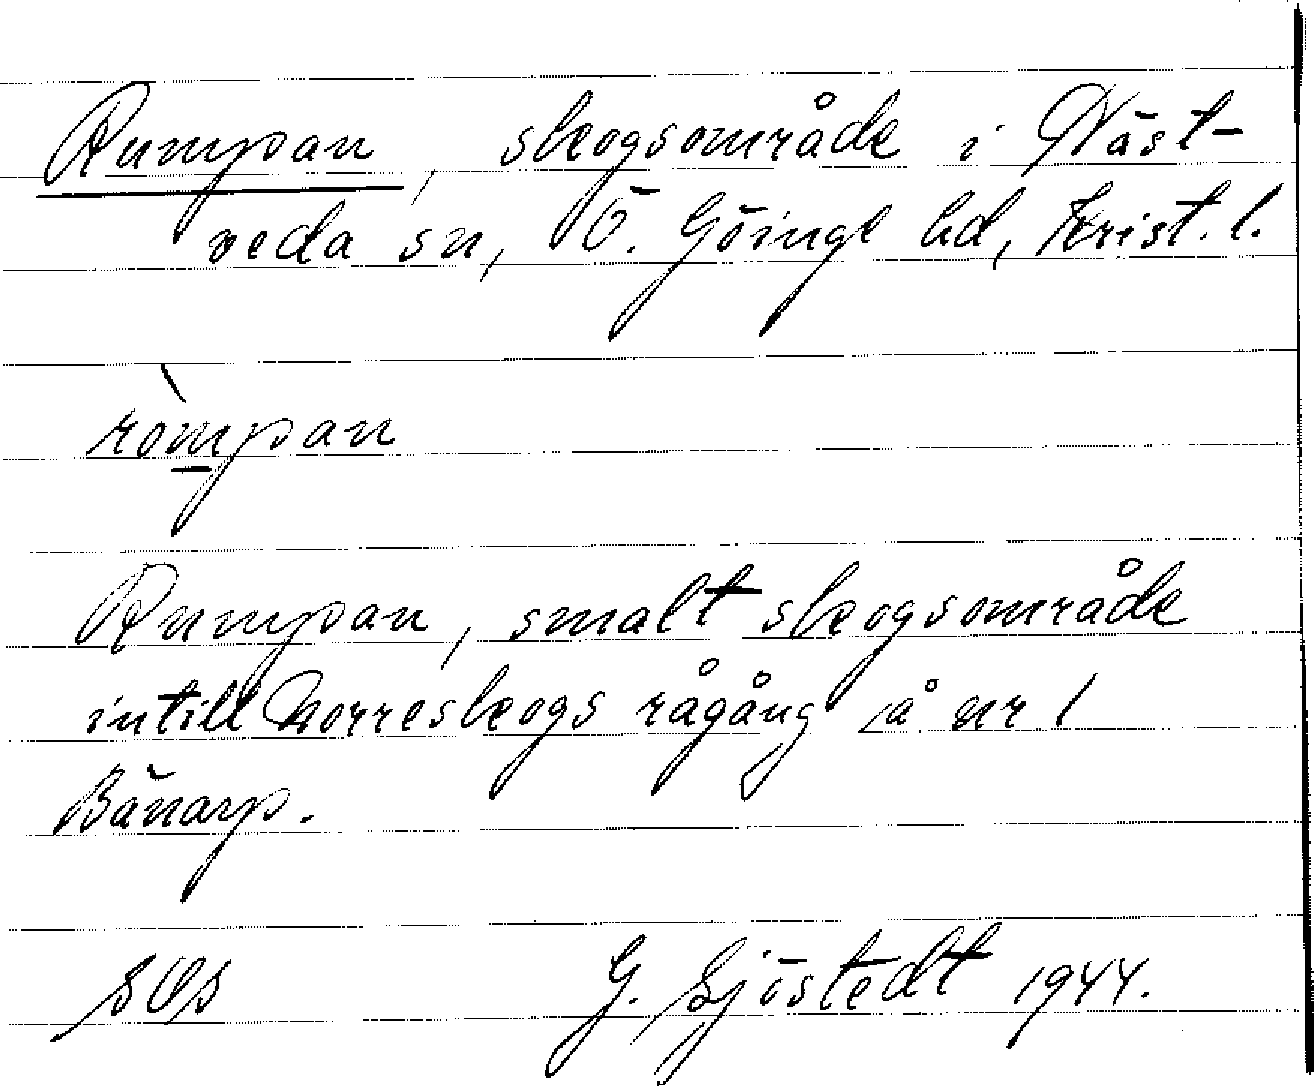 Rumpan, skogsområde i Väst-
veda sn, Ö. Göinge hd, Krist. l.
ròmpan
Rumpan, smalt skogsområde
intill Norreskogs rågång å nr 1
Bänarp.
G. Sjöstedt 1944.